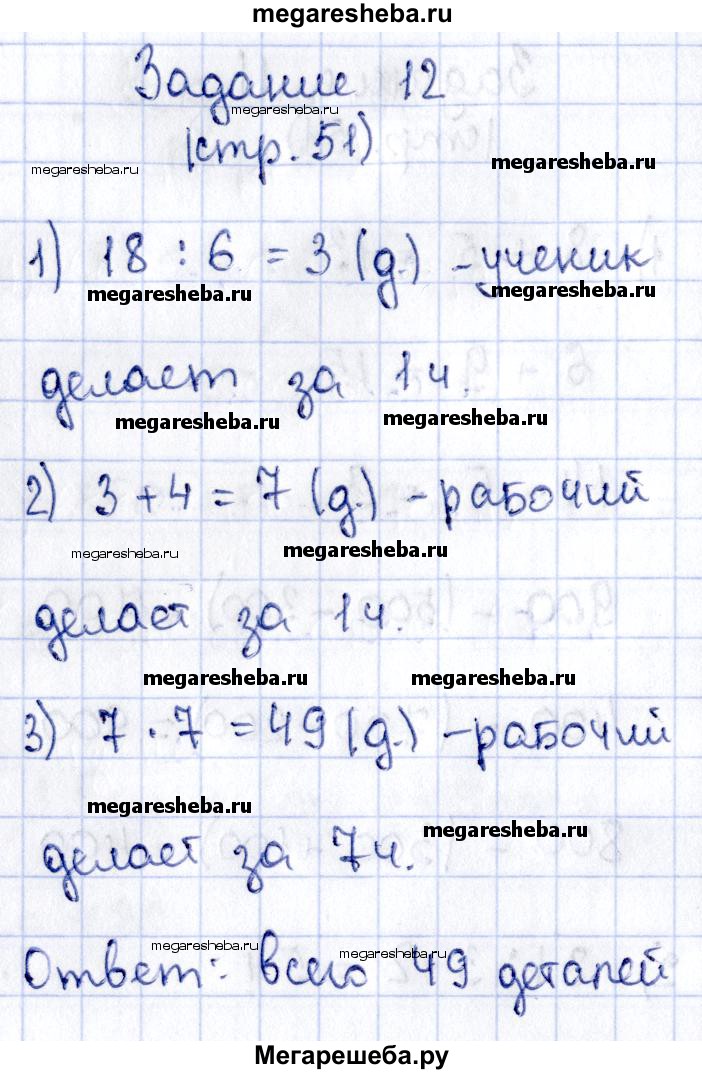 megaresheba.ru
Задание 12
megaresheba.ru
(стр. 51)
megaresheba.ru
megaresheba.ru
1) 18 : 6 = 3 (д.) - ученик
megaresheba.ru
megaresheba.ru
делает за 1 ч.
megaresheba.ru
megaresheba.ru
2) 3 + 4 = 7 (д.) - рабочий
megaresheba.ru
megaresheba.ru
делает за 1 ч.
megaresheba.ru
megaresheba.ru
3) 7 · 7 = 49 (д.) - рабочий
megaresheba.ru
megaresheba.ru
делает за 7 ч.
megaresheba.ru
megaresheba.ru
Ответ: всего 49 деталей
Мегарешеба.ру